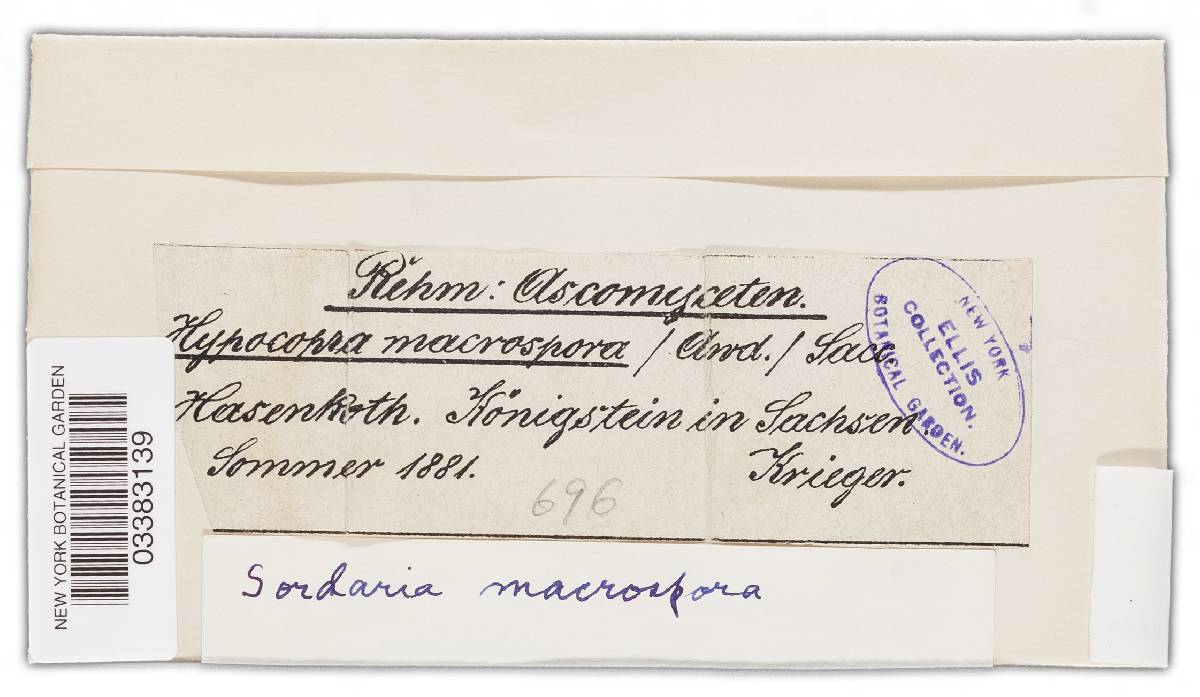 Rehm: Ascomyceten.
Hypocopra macrospora / Awd. / Sacc
Hasenkoth. Königstein in Sachsen.
Sommer 1881. Krieger.
696
NEW YORK
ELLIS
COLLECTION.
BOTANICAL GARDEN.
Sordaria macrospora
NEW YORK BOTANICAL GARDEN
03383139